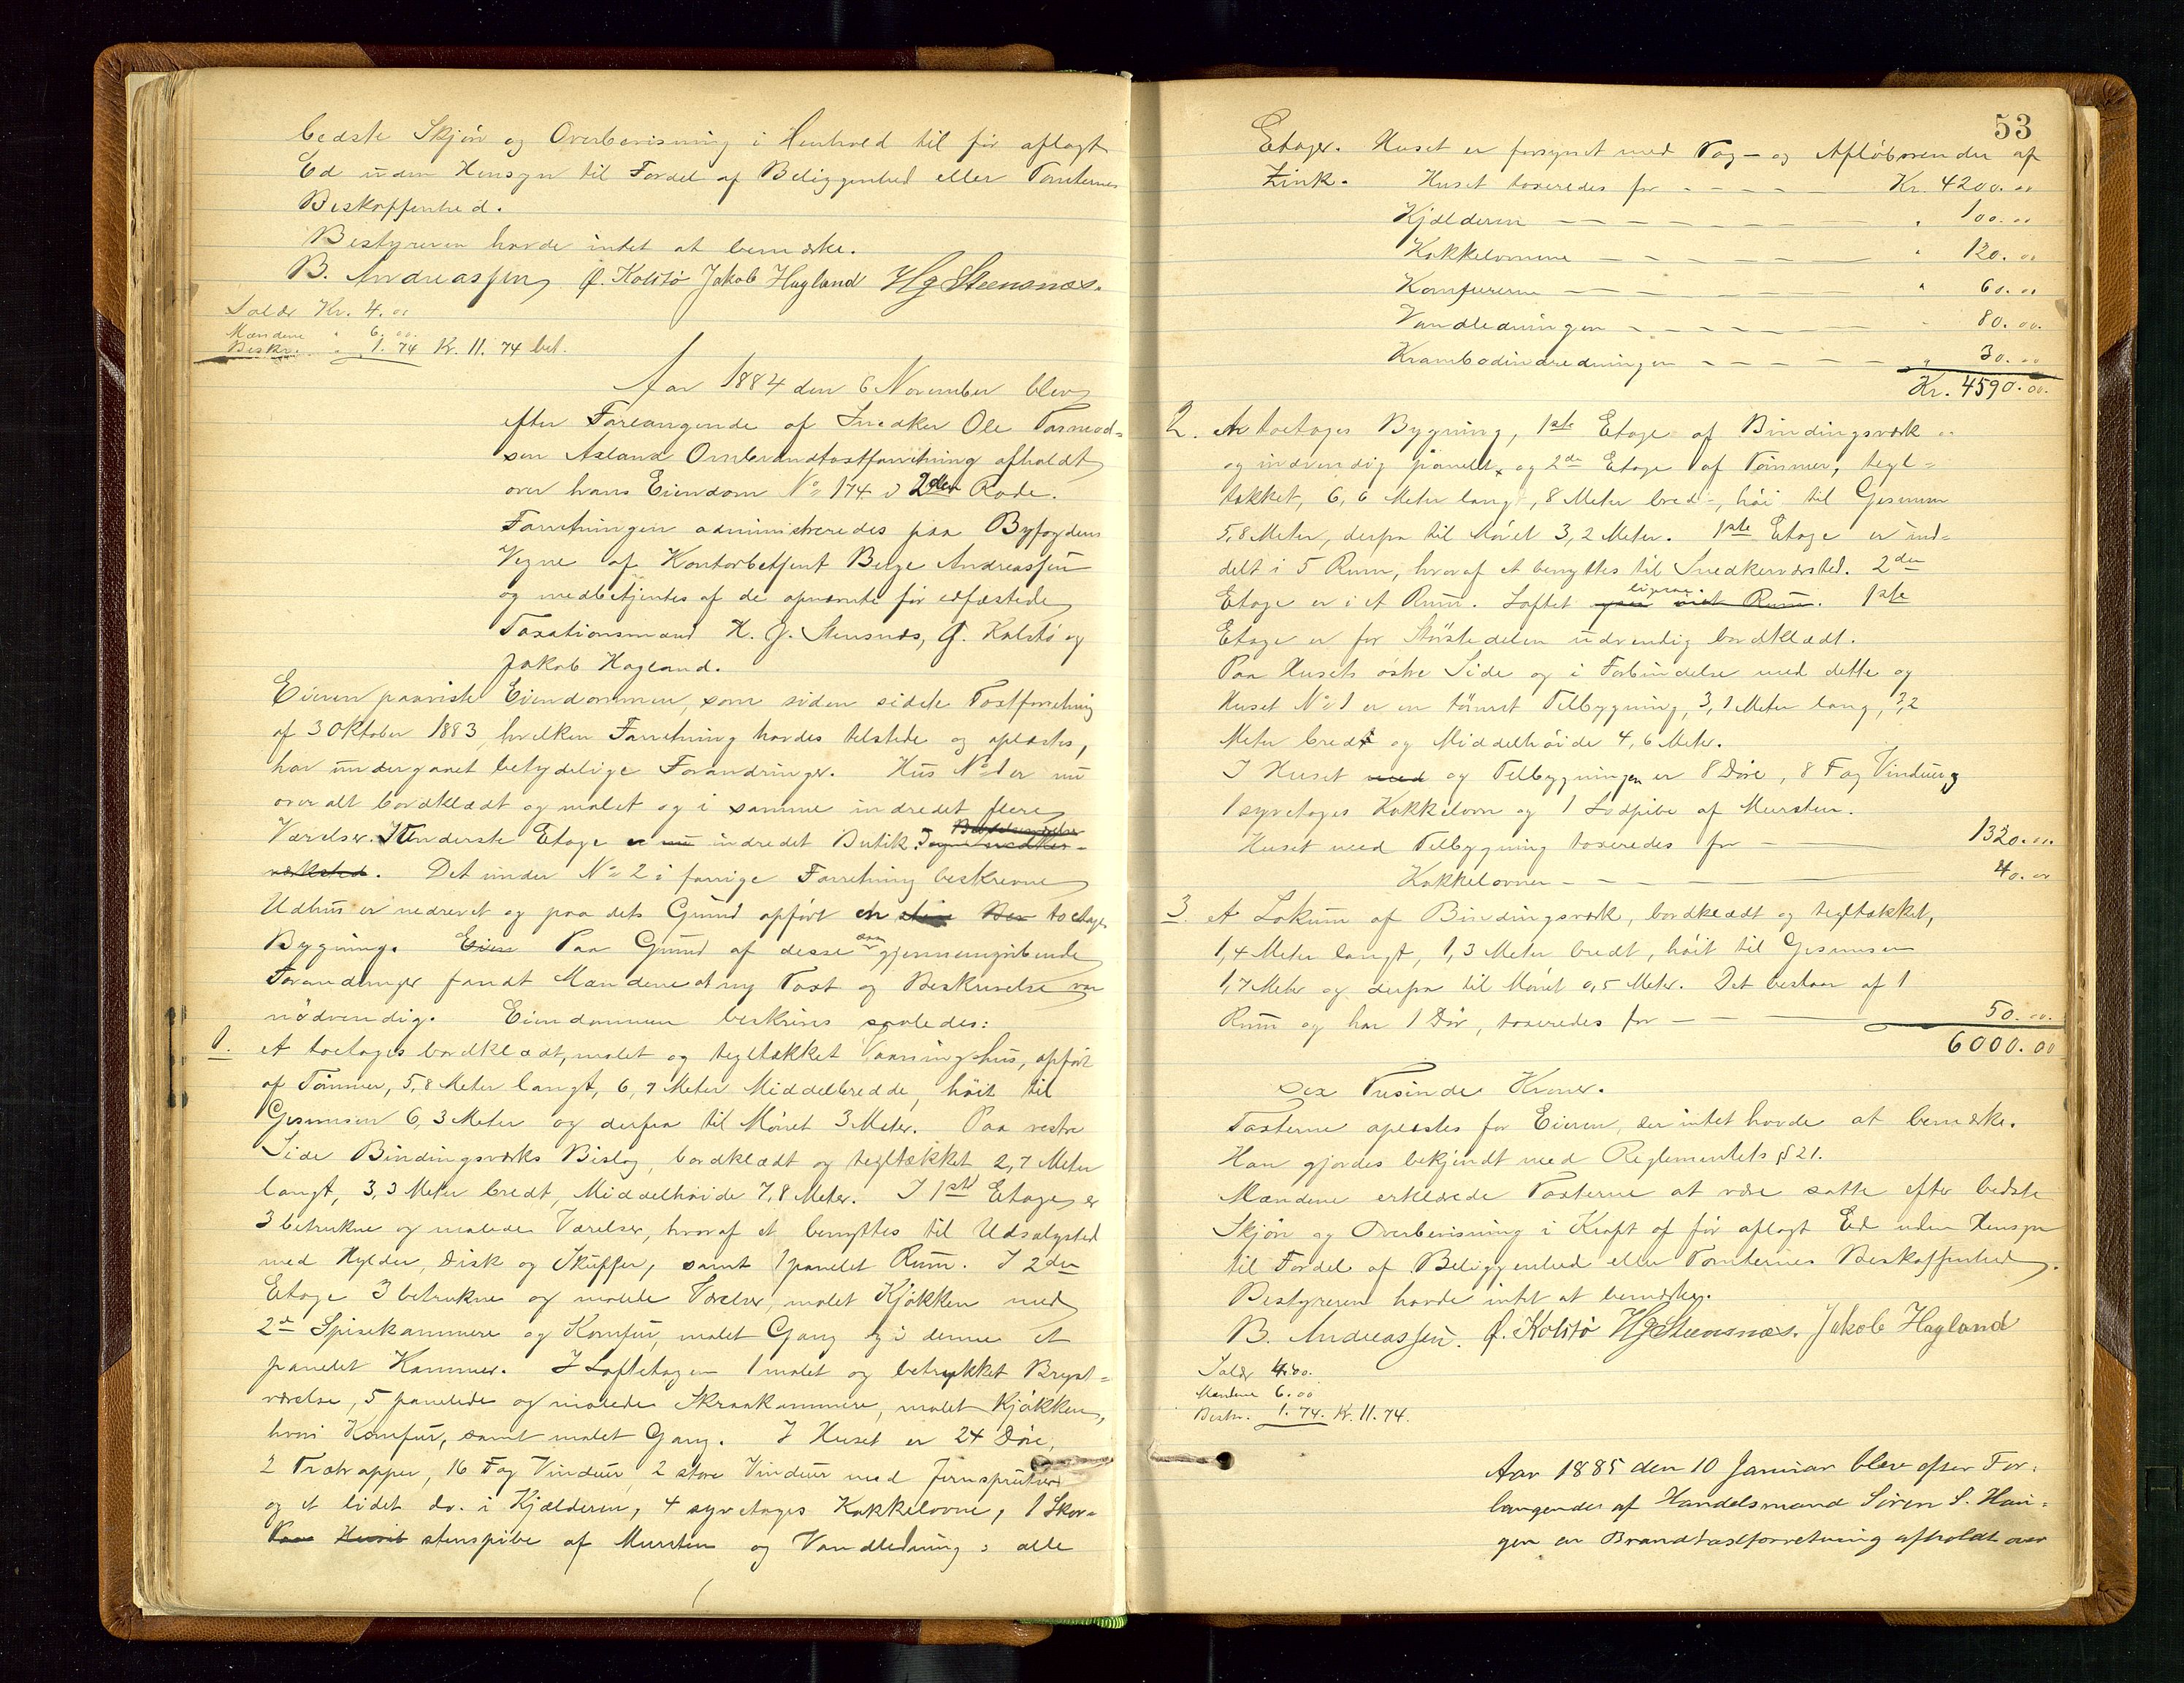 bedste Skjøn og Overbevisning i Henhold til før aflagt
Ed uden Hensyn til Fordel af Beliggenhed eller Tomternes
Beskaffenhed.
Bestyreren havde intet at bemærke.
B. Andreassen, O. Kolstø Jakob Hagland HgSteensnæs.
Salær Kr. 4.00
Mændene " 6.00
Beskr. " 1.74 Kr. 11.74 bet.
Aar 1884 den 6 November blev
efter Forlangende af Snedker Ole Tormod-
sen Asland Ombrandtaxtforretning afholdt
over hans Eiendom No 174 i 2den Rode.
Forretningen administreredes paa Byfogdens
Vegne af Kontorbetjent Berge Andreassen
og medbetjentes af de opnævnte før edfæstede
Taxationsmænd H. G. Stensnæs, O. Kolstø og
Jakob Hagland.
Eieren paaviste Eiendommen, som siden sidste Taxtforretning
af 3 Oktober 1883, hvilken Forretning havdes tilstede og oplæstes,
har undergaaet betydelige Forandringer. Hus No 1 er nu
overalt bordklædt og malet og i samme indredet flere
Værelser. I Underste Etage er nu indredet Butik.
værksted. Det under No 2 i forrige Forretning beskrevne
Udhus er nedrevet og paa dets Grund opført en toetages
Bygning. Eier Paa Grund af disse saa gjennemgribende
Forandringer fandt Mændene at ny Taxt og Beskrivelse var
nødvendig. Eiendommen beskrives saaledes:
1. et toetages bordklædt, malet og tegltækket Vaaningshus, opført
af Tømmer, 5,8 Meter langt, 6,7 Meter Middelbredde, høit til
Gesimsen 6,3 Meter og derfra til Mønet 3 Meter. Paa vestre
Side Bindingsværks Bislag, bordklædt og tegltækket 2,7 Meter
langt, 3,3 Meter bredt, Middelhøide 7,8 Meter. I 1ste Etage er
3 betrukne og malede Værelser, hvoraf et benyttes til Udsalgsted
med Hylder, Disk og Skuffer, samt 1 panelet Rum. I 2den
Etage 3 betrukne og malede Værelser, malet Kjøkken med
2de Spisekammere og Komfur, malet Gang og i denne et
panelet Kammer. I Loftetagen 1 malet og betrukket Bryst-
værelse, 5 panelede og malede Skraakammere, malet Kjøkken,
hvori Komfur, samt malet Gang. I Huset er 24 Døre,
2 Trætrapper, 16 Fag Vinduer, 2 store Vinduer med Jernsprutser
og et lidet do. i Kjælderen, 4 syvetages Kakkelovne, 1 Skor-
Paa Huset stenspibe af Mursten og Vandledning i alle
53
Etager. Huset er forsynet med Tag- og Afløbsrender af
Zink. Huset taxeredes for - - - - Kr. 4200.00
Kjælderen - - - - " 100.00
Kakkelovnene - - - - " 120.00
Komfurerne - - - - " 60.00
Vandledningen - - - - " 80.00
Krambodindredningen - - - - " 30.00
Kr. 4590.00.
2. en toetages Bygning, 1ste Etage af Bindingsværk
og indvendig panelet, og 2de Etage af Tømmer, tegl-
tækket, 6,6 Meter lang, 8 Meter bred, høi til Gesimsen
5,8 Meter, derfra til Mønet 3,2 Meter. 1ste Etage er ind-
delt i 5 Rum, hvoraf et benyttes til Snedkerværksted. 2den
Etage er i et Rum. Loftet ligesaa. 1ste
Etage er for Størstedelen udvendig bordklædt.
Paa Husets østre Side og i Forbindelse med dette og
Huset No 1 er en tømret Tilbygning, 3,1 Meter lang, 3,2
Meter bred og Middelhøide 4,6 Meter.
I Huset med og Tilbygningen er 8 Døre, 8 Fag Vinduer,
1 syvetages Kakkelovn og 1 Lodpibe af Mursten.
Huset med Tilbygning taxeredes for - - 1320.00.
Kakkelovnen - - - 40.00
3. et Lokum af Bindingsværk, bordklædt og tegltækket,
1,4 Meter langt, 1,3 Meter bredt, høit til Gesimsen
1,7 Meter og derfra til Mønet 0,5 Meter. Det bestaar af 1
Rum og har 1 Dør, taxeredes for - - - 50.00.
6000.00
sex Tusinde Kroner.
Taxterne oplæstes for Eieren, der intet havde at bemærke.
Han gjordes bekjendt med Reglementets § 21.
Mændene erklærede Taxterne at være satte efter bedste
Skjøn og Overbevisning i Kraft af før aflagt Ed uden Hensyn
til Fordel af Beliggenhed eller Tomternes Beskaffenhed.
Bestyreren havde intet at bemærke.
B. Andreassen. O. Kolstø HgSteensnæs. Jakob Hagland
Salær 4.00.
Mændene 6.00
Beskr. 1.74. Kr. 11.74.
Aar 1885 den 10 Januar blev efter For-
langende af Handelsmand Sören S. Hau-
gen en Brandtaxtforretning afholdt over